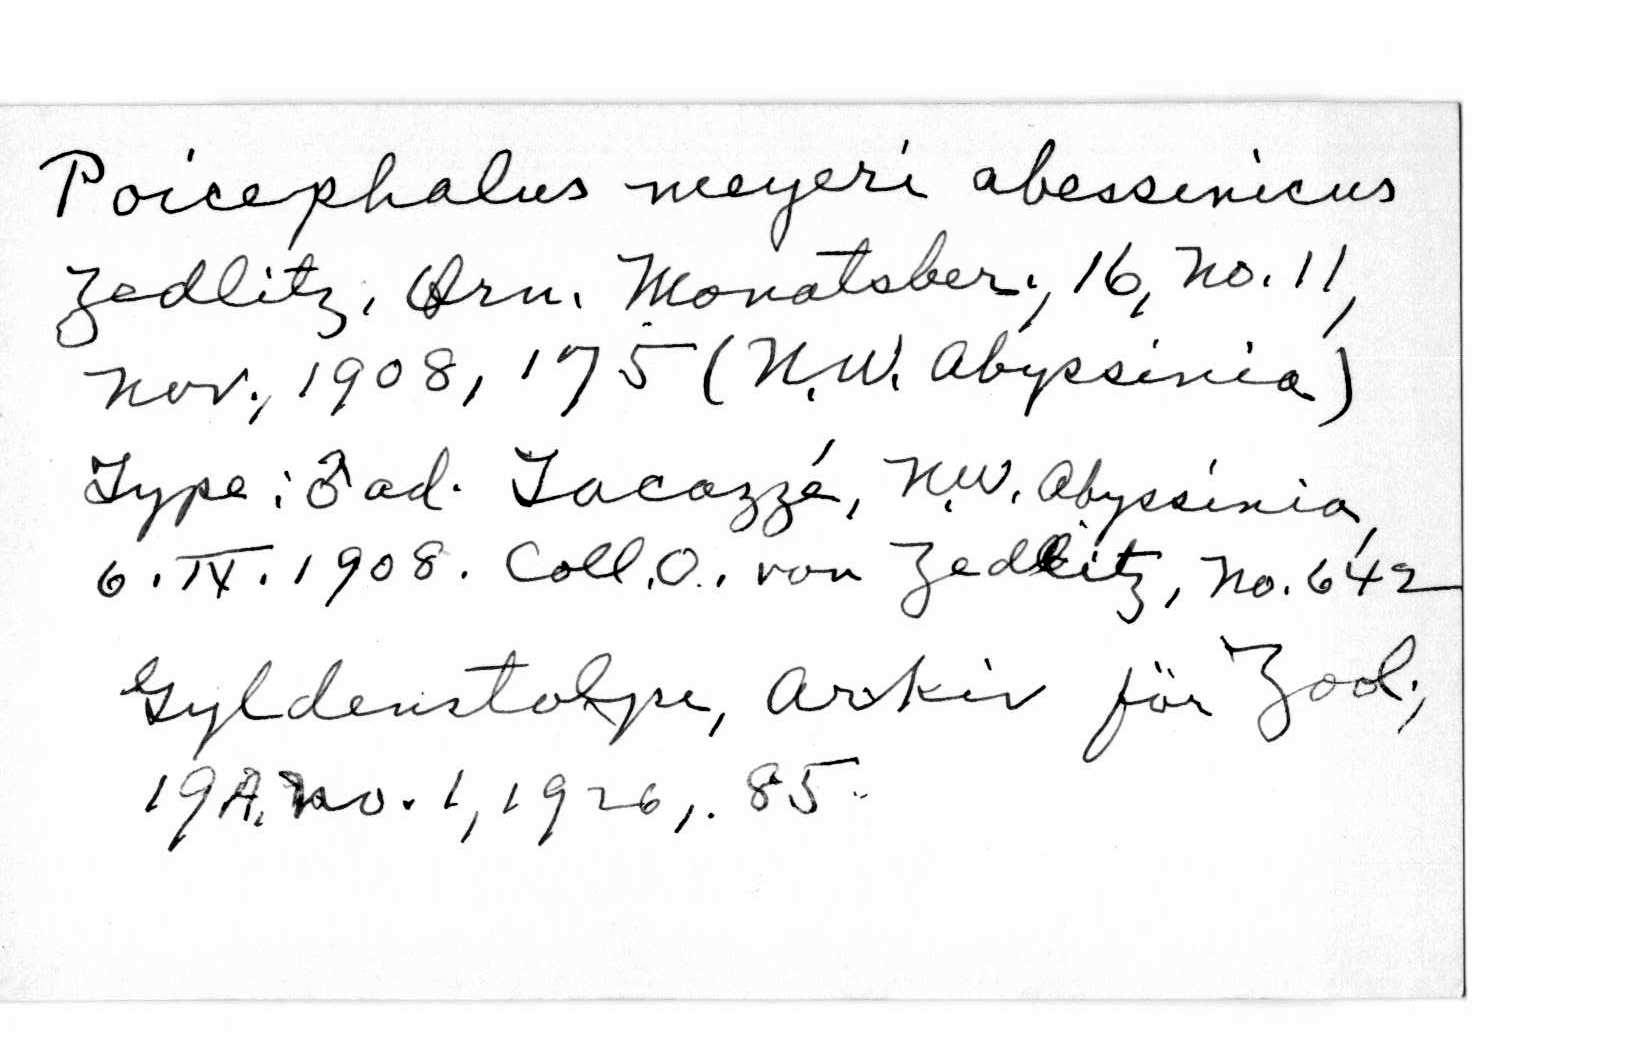 Poicephalus meyeri abessinicus
Zedlitz, Orn. Monatsber., 16, No. 11,
Nov., 1908, 175 (N.W. Abyssinia)
Type: ♂ ad. Tacazzé, N.W. Abyssinia,
6.IX.1908. Coll. O. von Zedlitz, No. 642
Gyldenstolpe, Arkiv för Zool.,
19A, No. 1, 1926, 85.